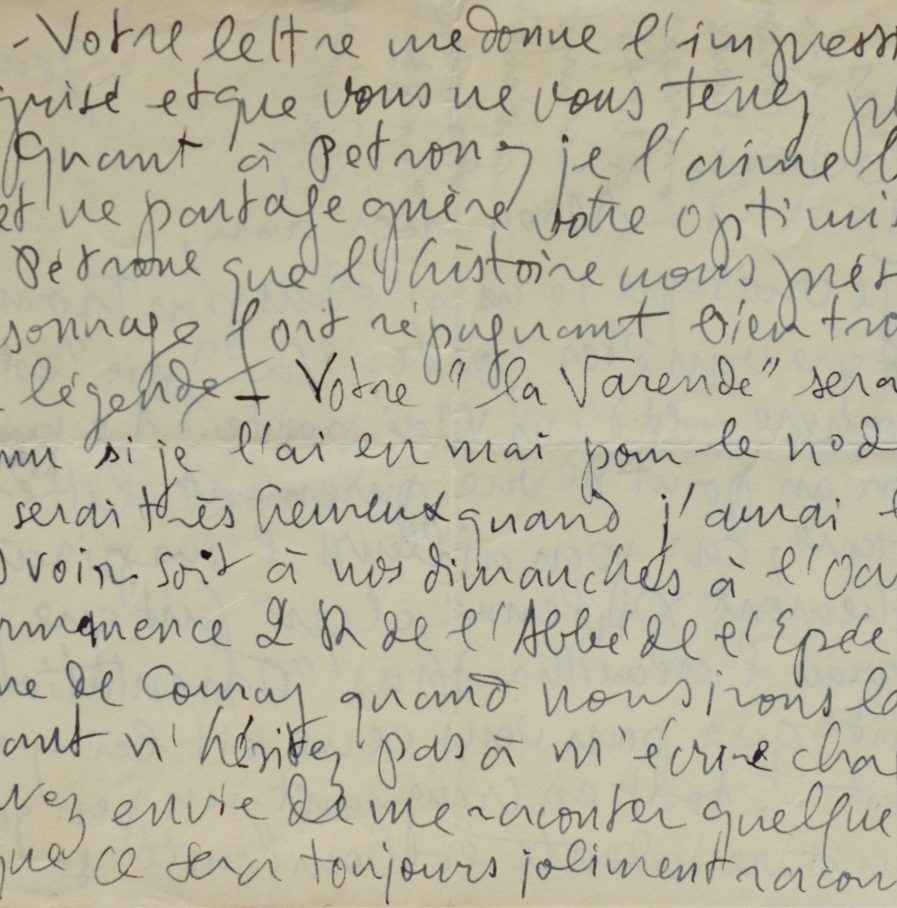 - Votre lettre me donne l'impress
grisé et que vous ne vous tenez pl
Quant à Petrone, je l'aime l
et ne partage guère votre optimis
Pétrone que l'histoire nous prés
sonnage fort répugnant bien tra
légende - Votre "la Varende" sera
nu si je l'ai en mai pour le n° d
serai très heureux quand j'aurai l
voir soit à nos dimanches à l'Oa
rmanence 2 R de l'Abbé de l'Epée
ne de Courcy quand nous irons la
ant n'hésitez pas à m'écrire cha
vez envie de me raconter quelque
que ce sera toujours joliment racon